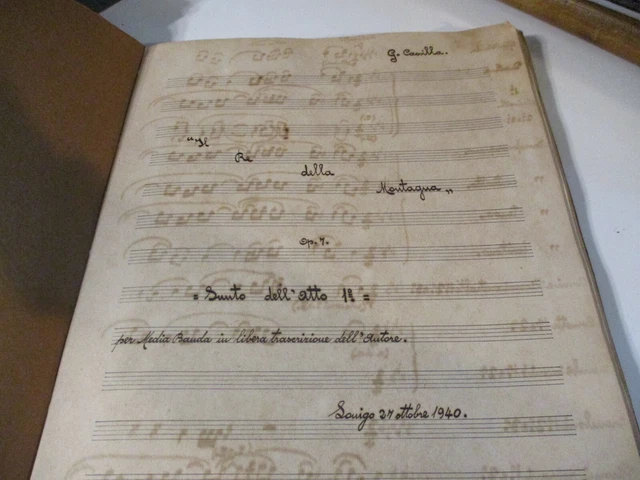 G. Cavilla.
"Il
Re
della
Montagna„
Op. 7.
= Sunto dell'atto 1º =
per Media Banda in libera trascrizione dell'Autore.
Lonigo 27 ottobre 1940.